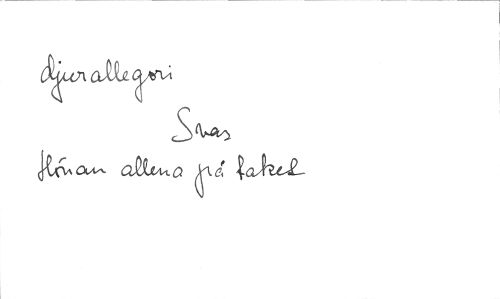 djurallegori
Svas
Hönan allena på taket